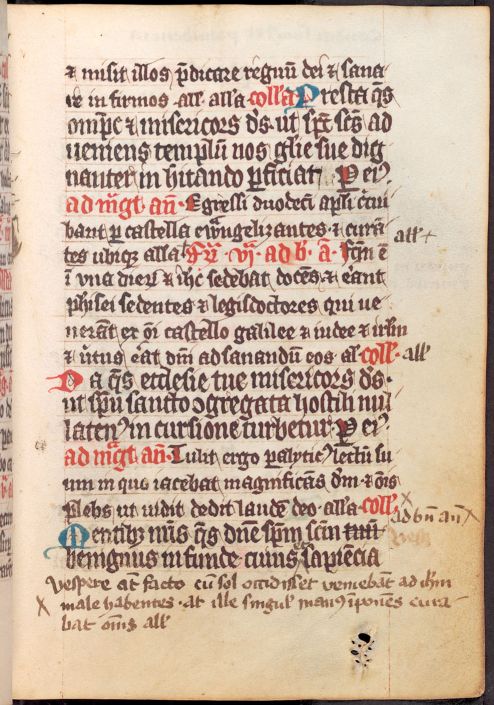 ⁊ misit illos p̄dicare regnū dei ⁊ sana
re in firmos · all' · all'a coll'a Presta q̄s
omp̄c ⁊ misericors d̄s · ut sp̄c sc̄s ad
ueniens templū nos glīe sue dig
nanter in hitando perficiat · Per
ad m̄gt an̄ · Egressi duodeci apl̄i circui
bant p castella ewangelizantes ⁊ curā
tes ubiqȝ all'a Fr̄ · vj · ad b · a · Fc̄m ē
all' +
ī una dierȝ ⁊ ih̄c sedebat docēs ⁊ erant
phīsei sedentes ⁊ legisdoctores qui ue
nerant ex oī castello galilee ⁊ iudee ⁊ irl̄m
⁊ u̇tus erat dn̄i ad sanandū eos al' coll' · all'
Da q̄s ecclesie tue misericors d̄s ·
ut sp̄u sancto ꝯgregata hostili nul
latenȝ in cursione turbetur Per
ad m̄gt an̄ · Tulit ergo paliticȝ lectū su
um in quo iacebat magnificās dm̄ · ⁊ oīs
plebs ut uidit dedit laudē deo · all'a coll'
ad bn̄ an̄ X
Mentibȝ nr̄is q̄s dn̄e sp̄m sc̄m
benignus infunde cuiuȝ sapiēcia
Vespere at̄ facto cū sol occidisset veniebāt ad ih̄m
X male habentes · at ille singul' manȝ īponēs cura
bat om̄s all'